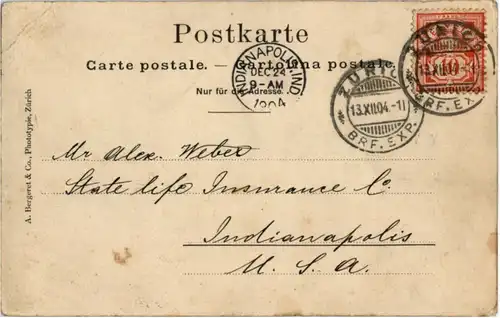 Postkarte
Carte postale. — Cartolina postale.
Nur für die Adresse.
INDIANAPOLIS, IND
DEC 24
9-AM
1904
ZÜRICH
13.XII.04.-11
BRF. EXP.
ZÜRICH
13.XII.04.-11
BRF. EXP.
10
A. Bergeret & Co., Phototypie, Zürich
Mr Alex. Weber
State life Insurance Co.
Indianapolis
U. S. A.